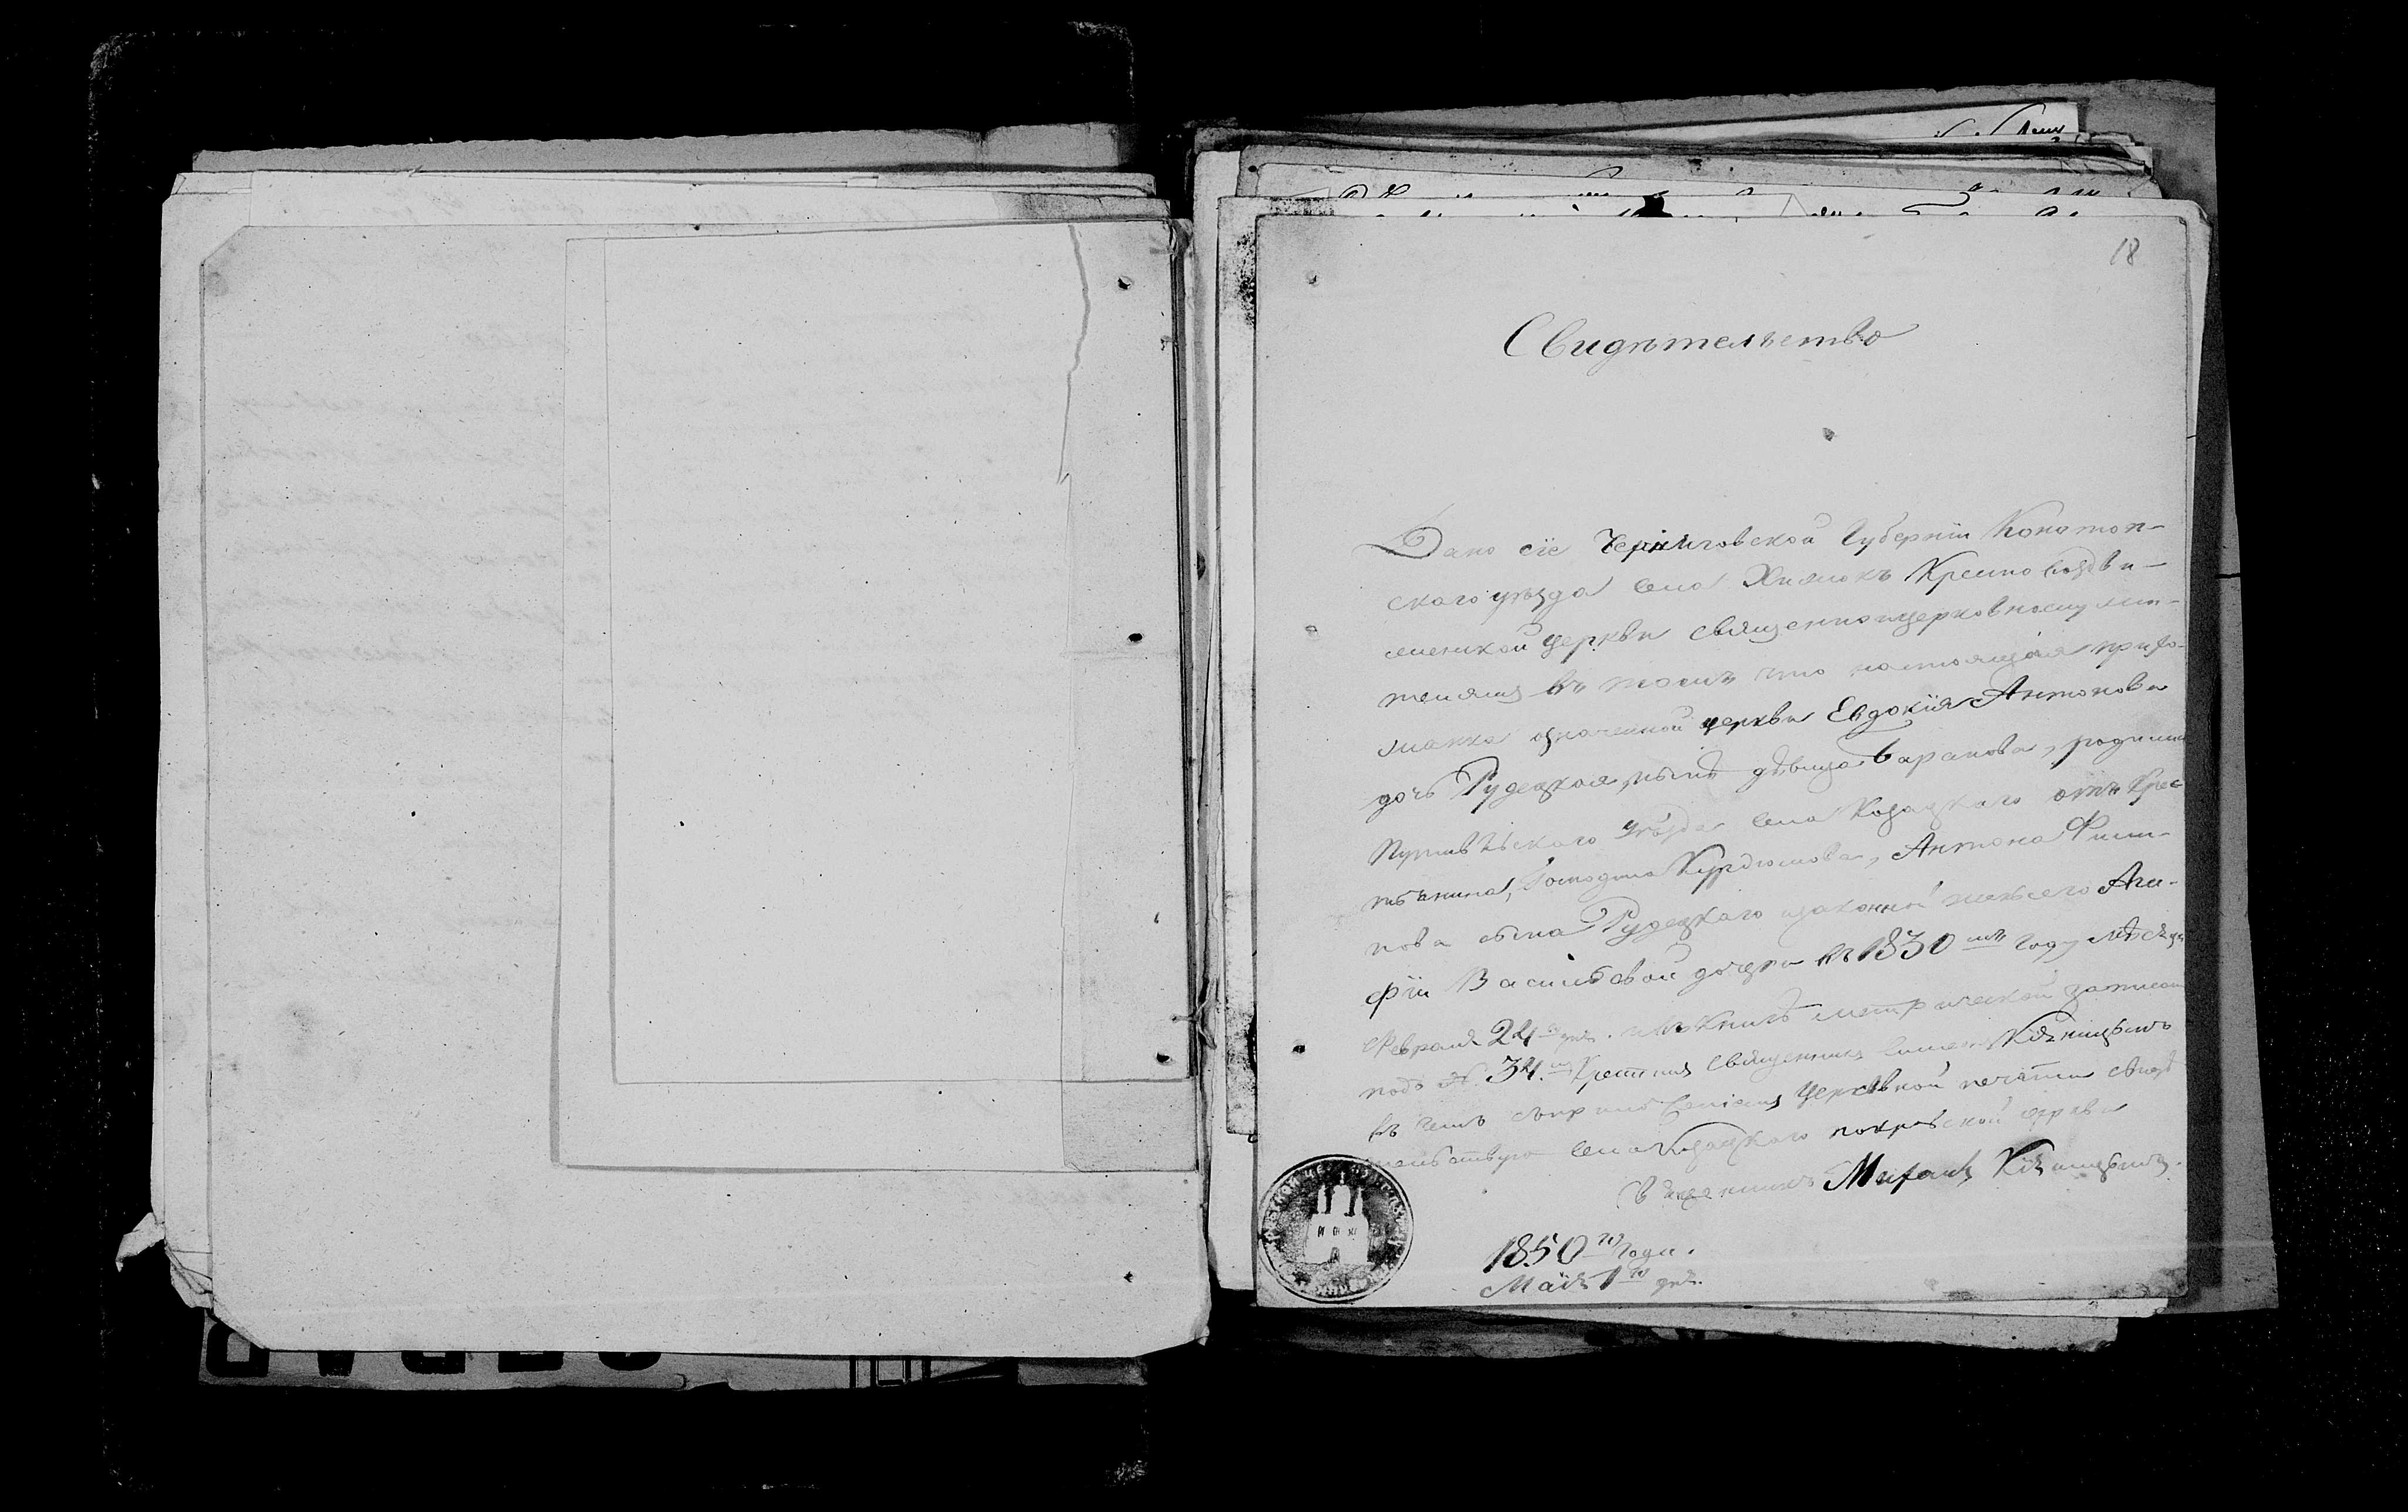 18
Свидѣтельство
Дано сіе Черниговской Губерніи Конотоп-
скаго уѣзда села Хижокъ Крестовоздви-
женской церкви священноцерковнослужи-
телямъ въ томъ что настоящая прихо-
жанка означенной церкви Евдокія Антонова
дочь Рудецкая, нынѣ дѣвица Баранова, родилась
Путивльскаго уѣзда села Козацкаго отъ Крес
тьянина, Господина Курдюмова, Антона Фили-
пова сына Рудецкаго изаконной жены его Ага-
фіи Васильевой дочери въ 1830мъ году мѣсяца
Февраля 24го дня. и въ книгѣ метрической записана
подъ №. 34.мъ Крещенна священникомъ
въ чемъ съ приложеніемъ Церковной печати свидѣ
тельствую села Козацкаго покровской церкви
Священникъ Михаилъ
1850го Года.
Маія 1го дня.